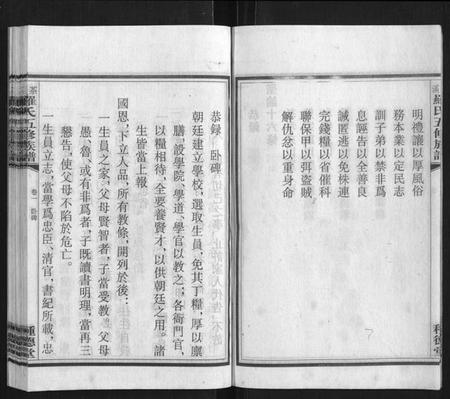 明禮讓以厚風俗
務本業以定民志
訓子弟以禁非爲
息誣告以全善良
誡匿逃以免株連
完錢糧以省催科
聯保甲以弭盜賊
解仇忿以重身命
羅氏五修族譜
卷
臥碑
種德堂
恭録 臥碑
朝廷建立學校，選取生員，免其丁糧，厚以廩
膳，設學院、學道、學官以教之；各衙門官，
以糧相待，全要養賢才，以供朝廷之用。諸
生皆當上報
國恩，下立人品，所有教條，開列於後：
一生員之家，父母賢智者，子當受教，父母
愚魯，或有非爲者，子既讀書明理，當再三
懇告，使父母不陷於危亡。
一生員立志，當學爲忠臣、清官，書紀所載，忠